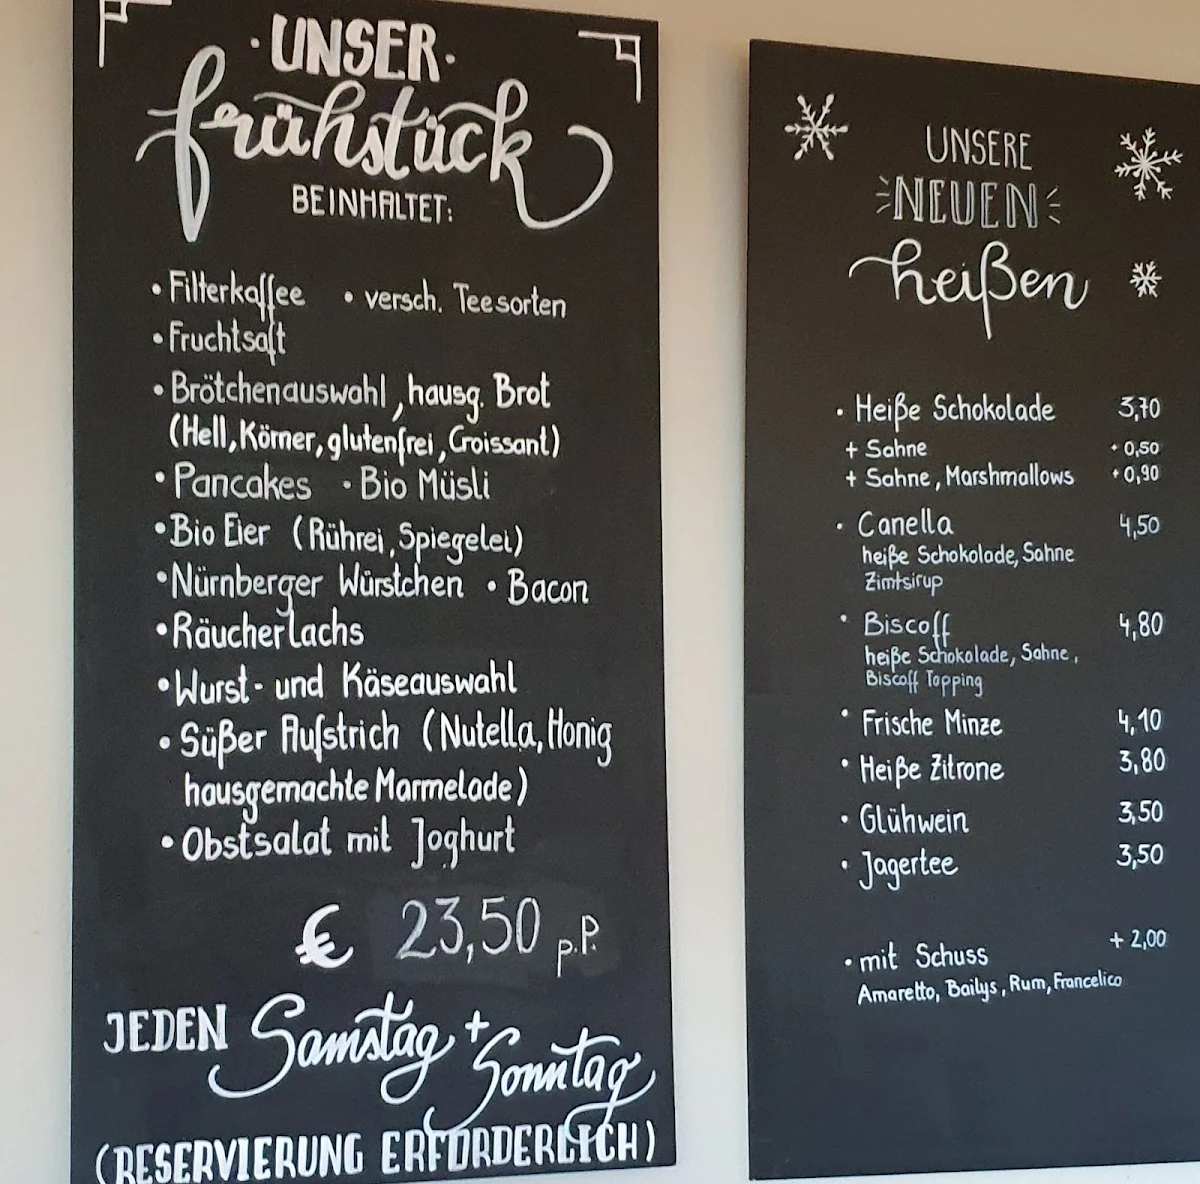 · UNSER ·
frühstück
BEINHALTET:
• Filterkaffee • versch. Teesorten
• Fruchtsaft
• Brötchenauswahl, hausg. Brot
(Hell, Körner, glutenfrei, Croissant)
• Pancakes • Bio Müsli
• Bio Eier (Rührei, Spiegelei)
• Nürnberger Würstchen • Bacon
• Räucherlachs
• Wurst- und Käseauswahl
• Süßer Aufstrich (Nutella, Honig
hausgemachte Marmelade)
• Obstsalat mit Joghurt
€ 23,50 p.P.
JEDEN Samstag + Sonntag
(RESERVIERUNG ERFORDERLICH)
UNSERE
NEUEN
heißen
• Heiße Schokolade 3,70
+ Sahne + 0,50
+ Sahne, Marshmallows + 0,90
• Canella 4,50
heiße Schokolade, Sahne
Zimtsirup
• Biscoff 4,80
heiße Schokolade, Sahne,
Biscoff Topping
• Frische Minze 4,10
• Heiße Zitrone 3,80
• Glühwein 3,50
• Jagertee 3,50
• mit Schuss + 2,00
Amaretto, Bailys, Rum, Francelico